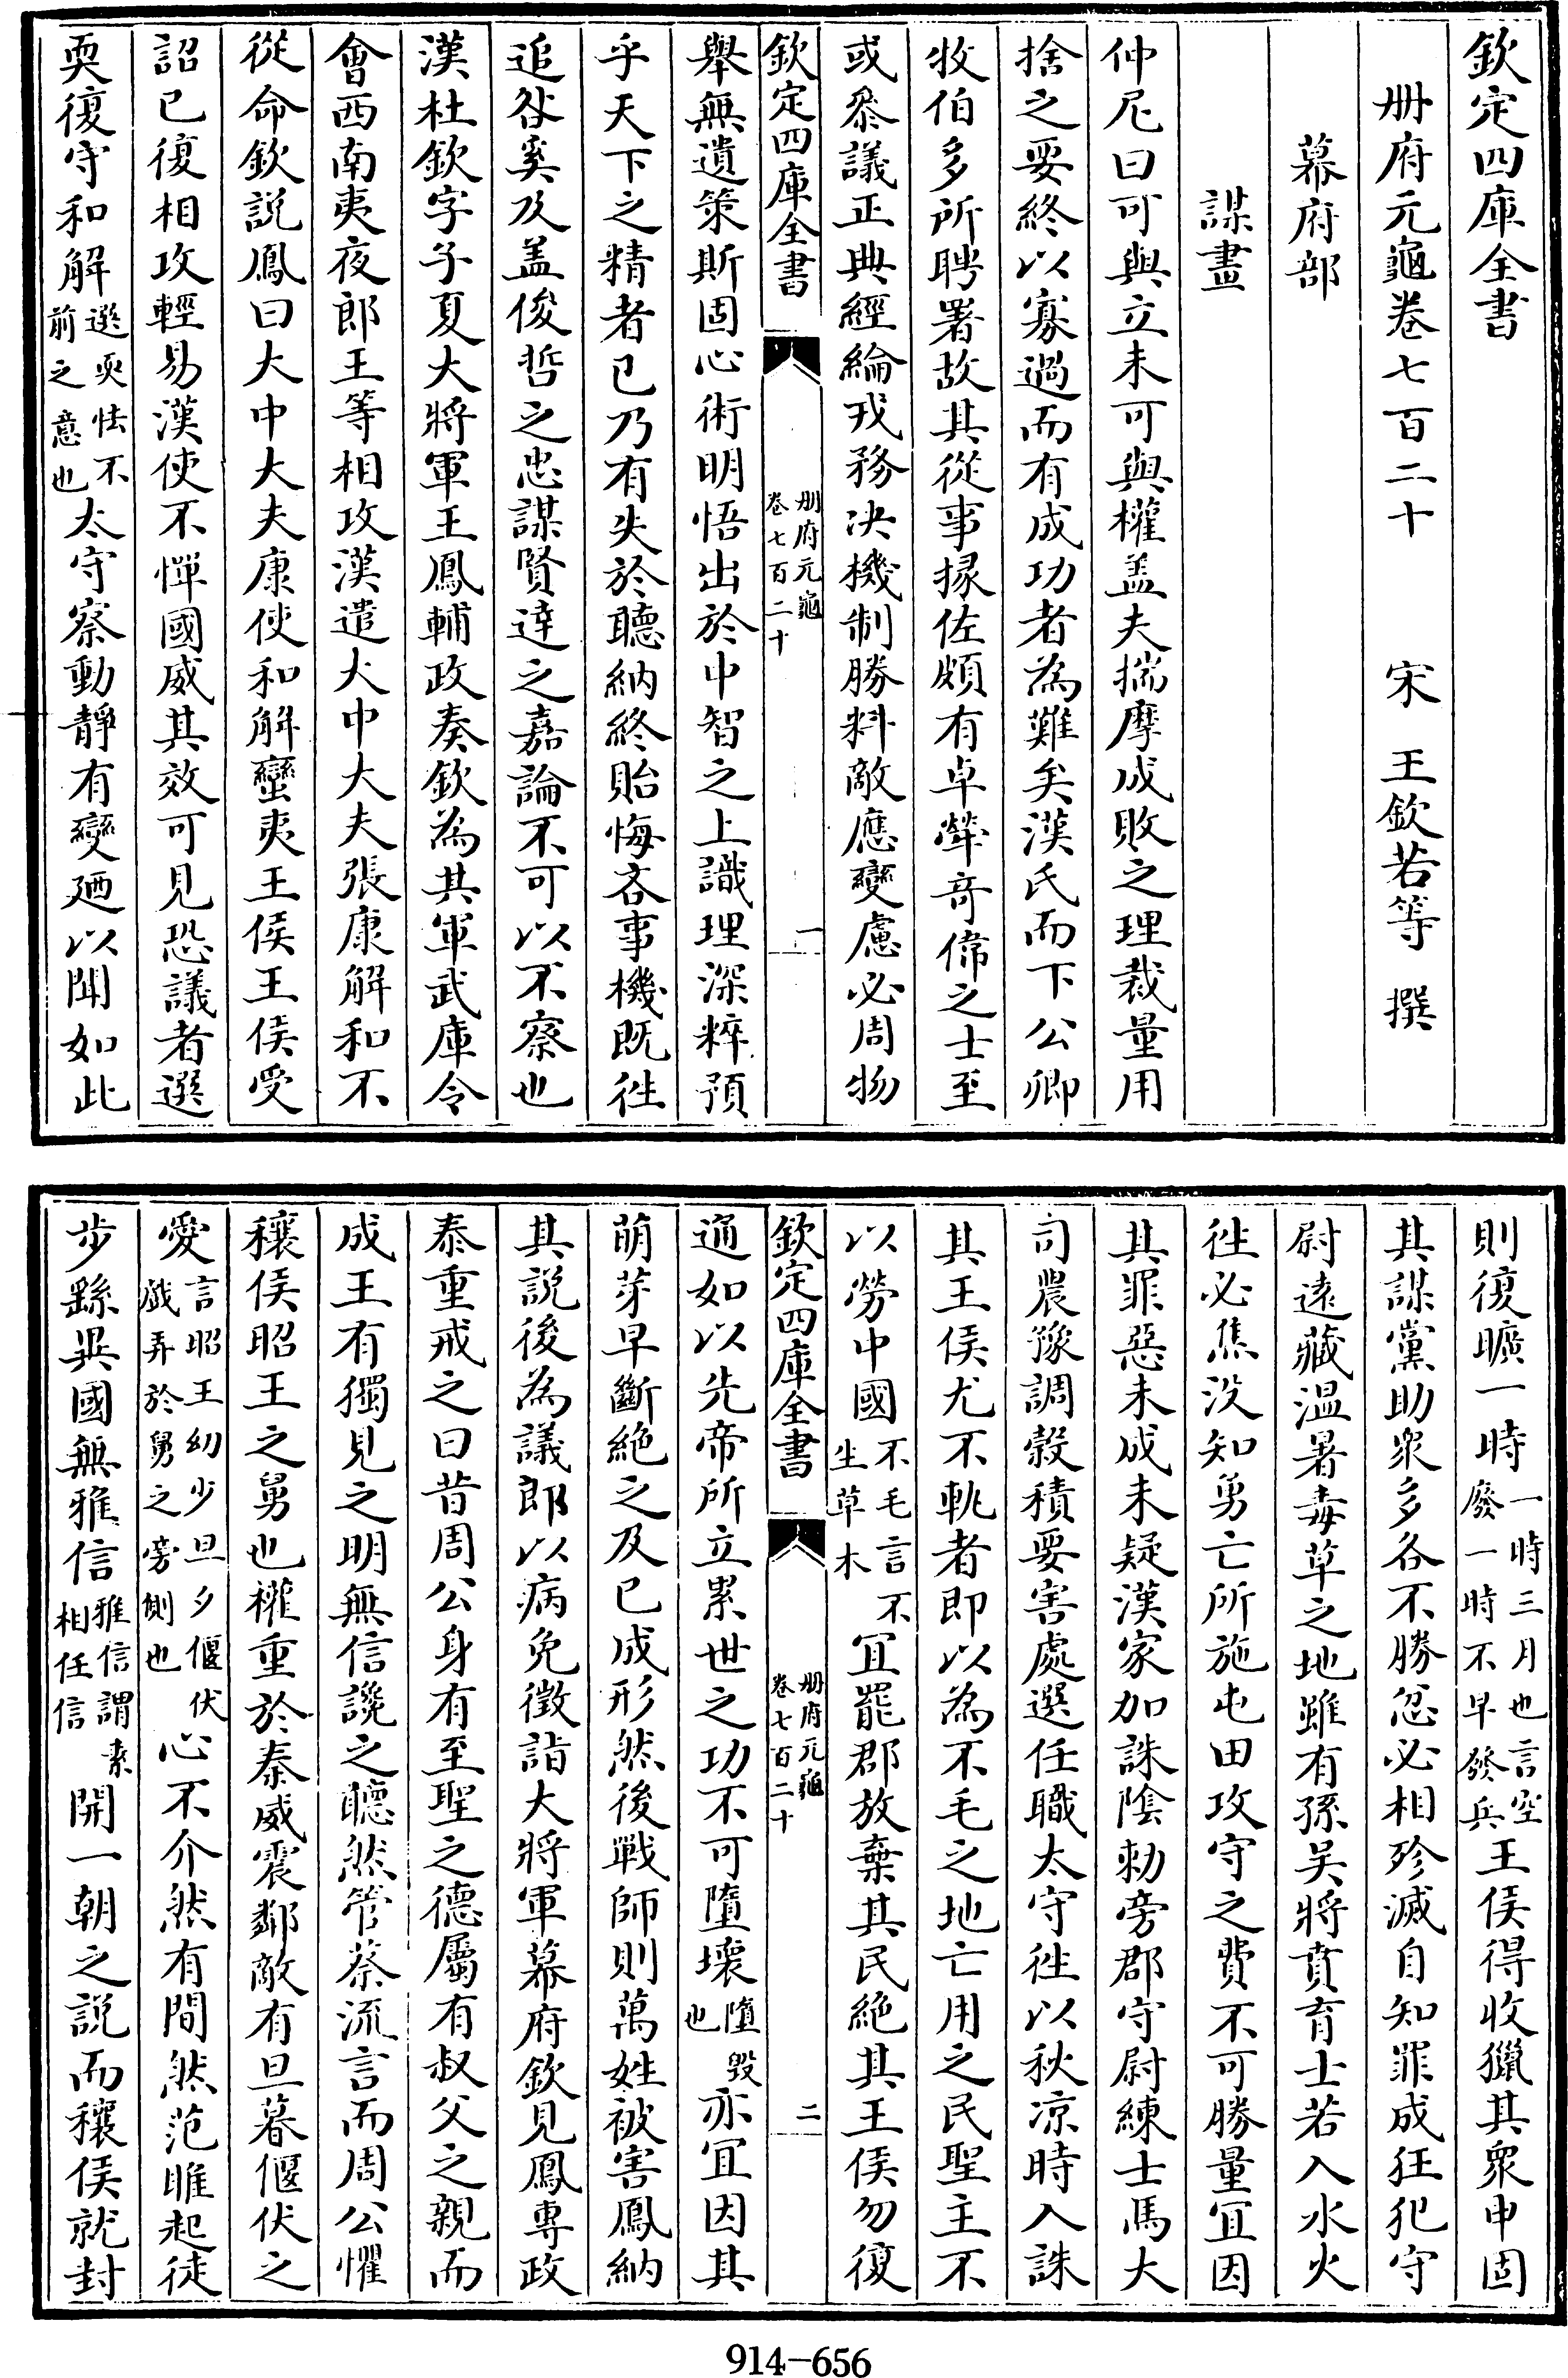 欽定四庫全書
册府元龜卷七百二十　宋　王欽若等　撰
幕府部
謀畫
仲尼曰可與立未可與權盖夫揣摩成敗之理裁量用
捨之要終以寡過而有成功者為難矣漢氏而下公卿
牧伯多所聘署故其從事掾佐頗有卓犖竒偉之士至
或叅議正典經綸戎務決機制勝料敵應變慮必周物
欽定四庫全書　册府元龜卷七百二十　一
舉無遺策斯固心術明悟出於中智之上識理深粹預
乎天下之精者已乃有失於聽納終貽悔吝事機既徃
追咎奚及盖俊哲之忠謀賢達之嘉論不可以不察也
漢杜欽字子夏大將軍王鳳輔政奏欽為其軍武庫令
會西南夷夜郎王等相攻漢遣大中大夫張康解和不
從命欽説鳳曰大中大夫康使和解蠻夷王侯王侯受
詔已復相攻輕易漢使不憚國威其效可見恐議者選
耎復守和解選耎怯不前之意也太守察動靜有變廼以聞如此
則復曠一時一時三月也言空廢一時不早發兵王侯得收獵其衆申固
其謀黨助衆多各不勝忿必相殄滅自知罪成狂犯守
尉遠藏温暑毒草之地雖有孫吳將賁育士若入水火
徃必焦没知勇亡所施屯田攻守之費不可勝量宜因
其罪惡未成未疑漢家加誅陰勅旁郡守尉練士馬大
司農豫調穀積要害處選任職太守徃以秋凉時入誅
其王侯尤不軌者即以為不毛之地亡用之民聖主不
以勞中國不毛言不生草木宜罷郡放棄其民絶其王侯勿復
欽定四庫全書　册府元龜卷七百二十　二
通如以先帝所立累世之功不可墮壞墮毁也亦宜因其
萌芽早斷絶之及已成形然後戰師則萬姓被害鳳納
其説後為議郎以病免徵詣大將軍幕府欽見鳳專政
泰重戒之曰昔周公身有至聖之德屬有叔父之親而
成王有獨見之明無信讒之聽然管蔡流言而周公懼
穰侯昭王之舅也權重於秦威震鄰敵有旦暮偃伏之
愛言昭王幼少旦夕偃伏戲弄於舅之旁側也心不介然有間然范雎起徒
步繇異國無雅信雅信謂素相任信開一朝之説而穰侯就封
914-656